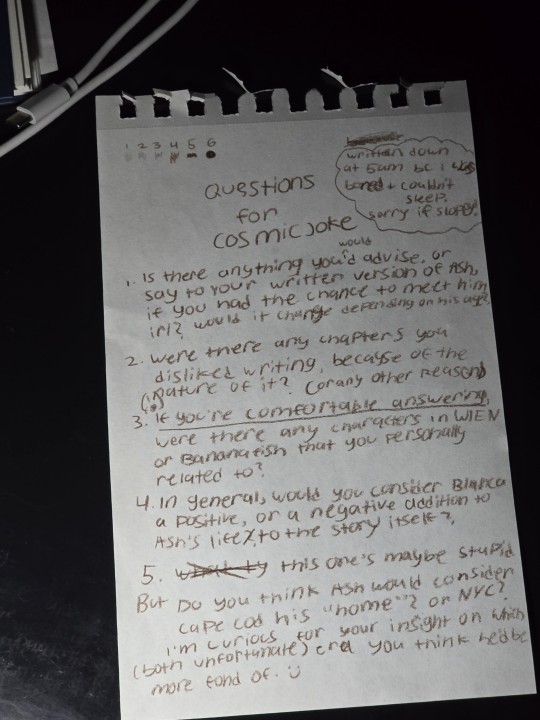 1 2 3 4 5 6
written down
at 5am bc i was
bored + couldn't
sleep.
sorry if sloppy!
Questions
for
cosmicjoke
1. Is there anything you'd would advise, or
say to your written version of Ash,
if you had the chance to meet him
irl? would it change depending on his age?
2. Were there any chapters you
disliked writing, because of the
nature of it? (or any other reason)
3. If you're comfortable answering,
were there any characters in WIEN
or Bananafish that you personally
related to?
4. In general, would you consider Blanca
a positive, or a negative addition to
Ash's life, to the story itself?
5. this one's maybe stupid
But Do you think Ash would consider
cape cod his "home"? or NYC?
I'm curious for your insight on which
(both unfortunate) end you think he'd be
more fond of. :)